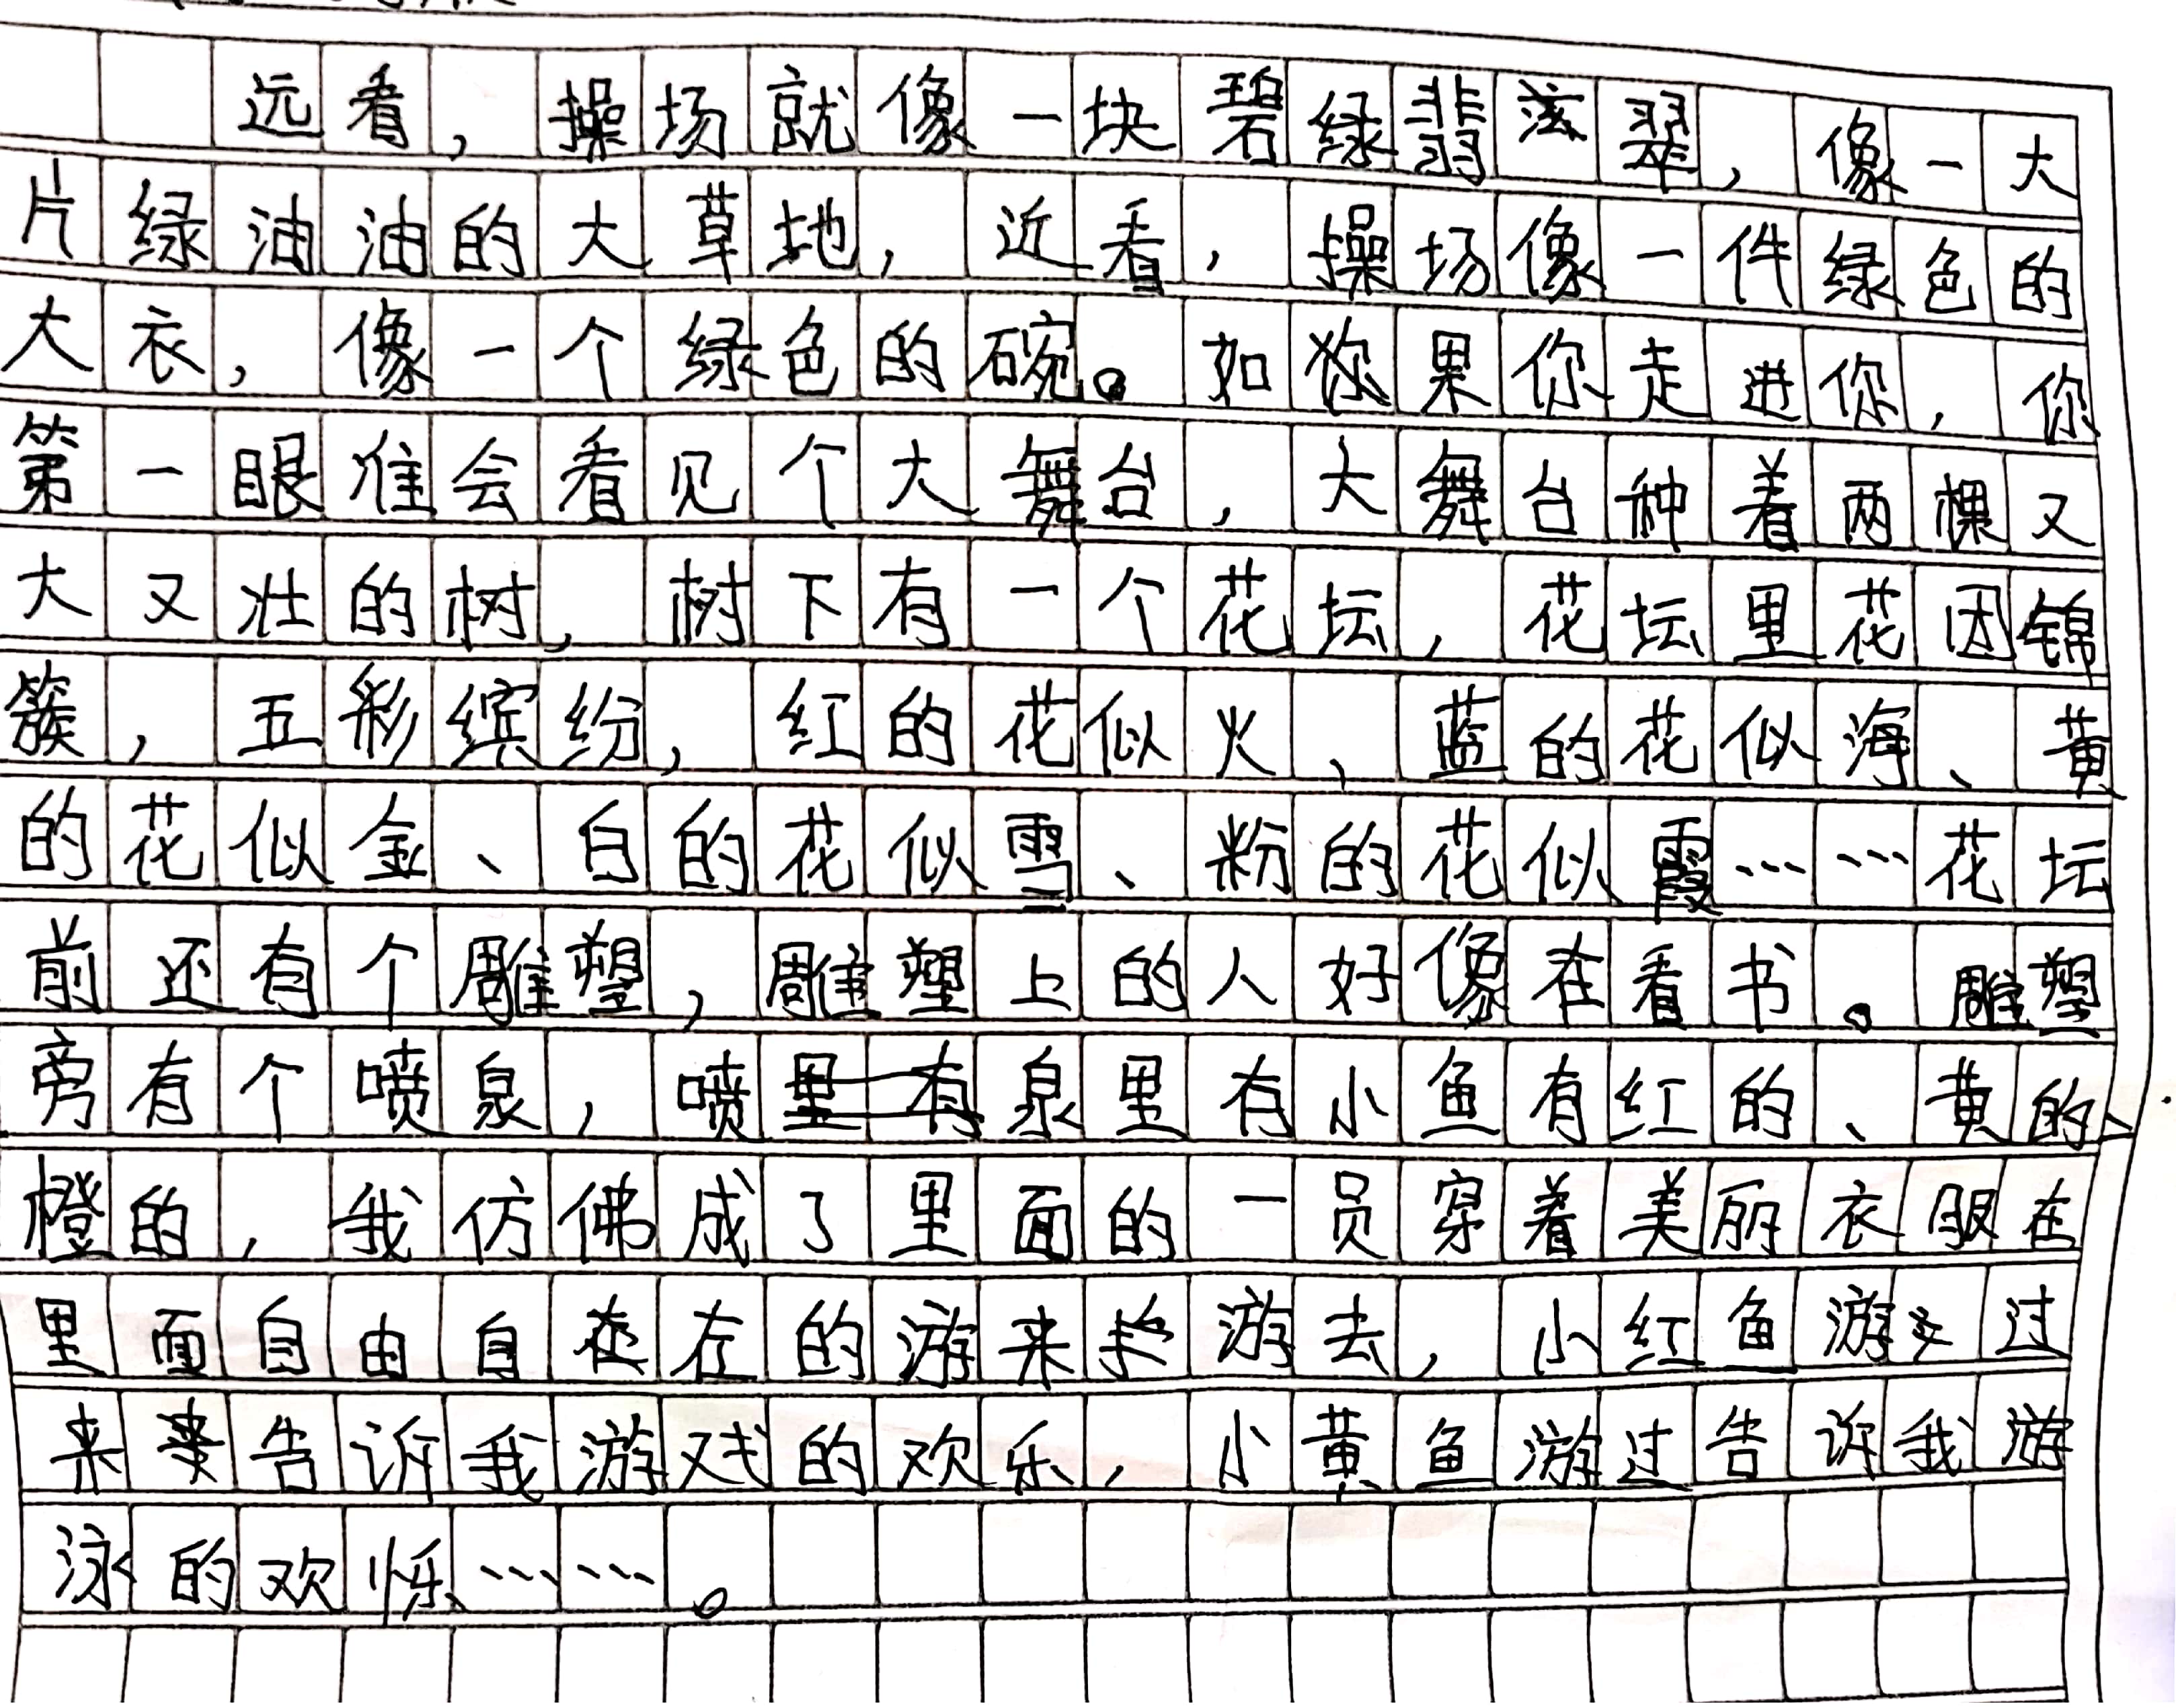 远看，操场就像一块碧绿翡翠，像一大
片绿油油的大草地，近看，操场像一件绿色的
大衣，像一个绿色的碗。如果你走进你，你
第一眼准会看见个大舞台，大舞台种着两棵又
大又壮的树，树下有一个花坛，花坛里花因锦
簇，五彩缤纷，红的花似火、蓝的花似海、黄
的花似金、白的花似雪、粉的花似霞……花坛
前还有个雕塑，雕塑上的人好像在看书。雕塑
旁有个喷泉，喷泉里有小鱼有红的、黄的、
橙的，我仿佛成了里面的一员穿着美丽衣服在
里面自由自在在的游来游去，小红鱼游过
来告诉我游戏的欢乐，小黄鱼游过告诉我游
泳的欢乐……。